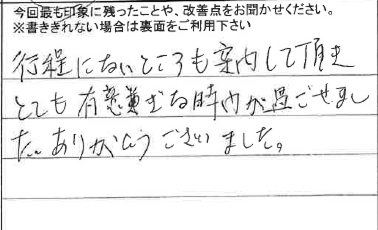 今回最も印象に残ったことや、改善点をお聞かせください。
※書ききれない場合は裏面をご利用下さい
行程にないところも案内して頂き
とても有意義な時間が過ごせまし
た。ありがとうございました。